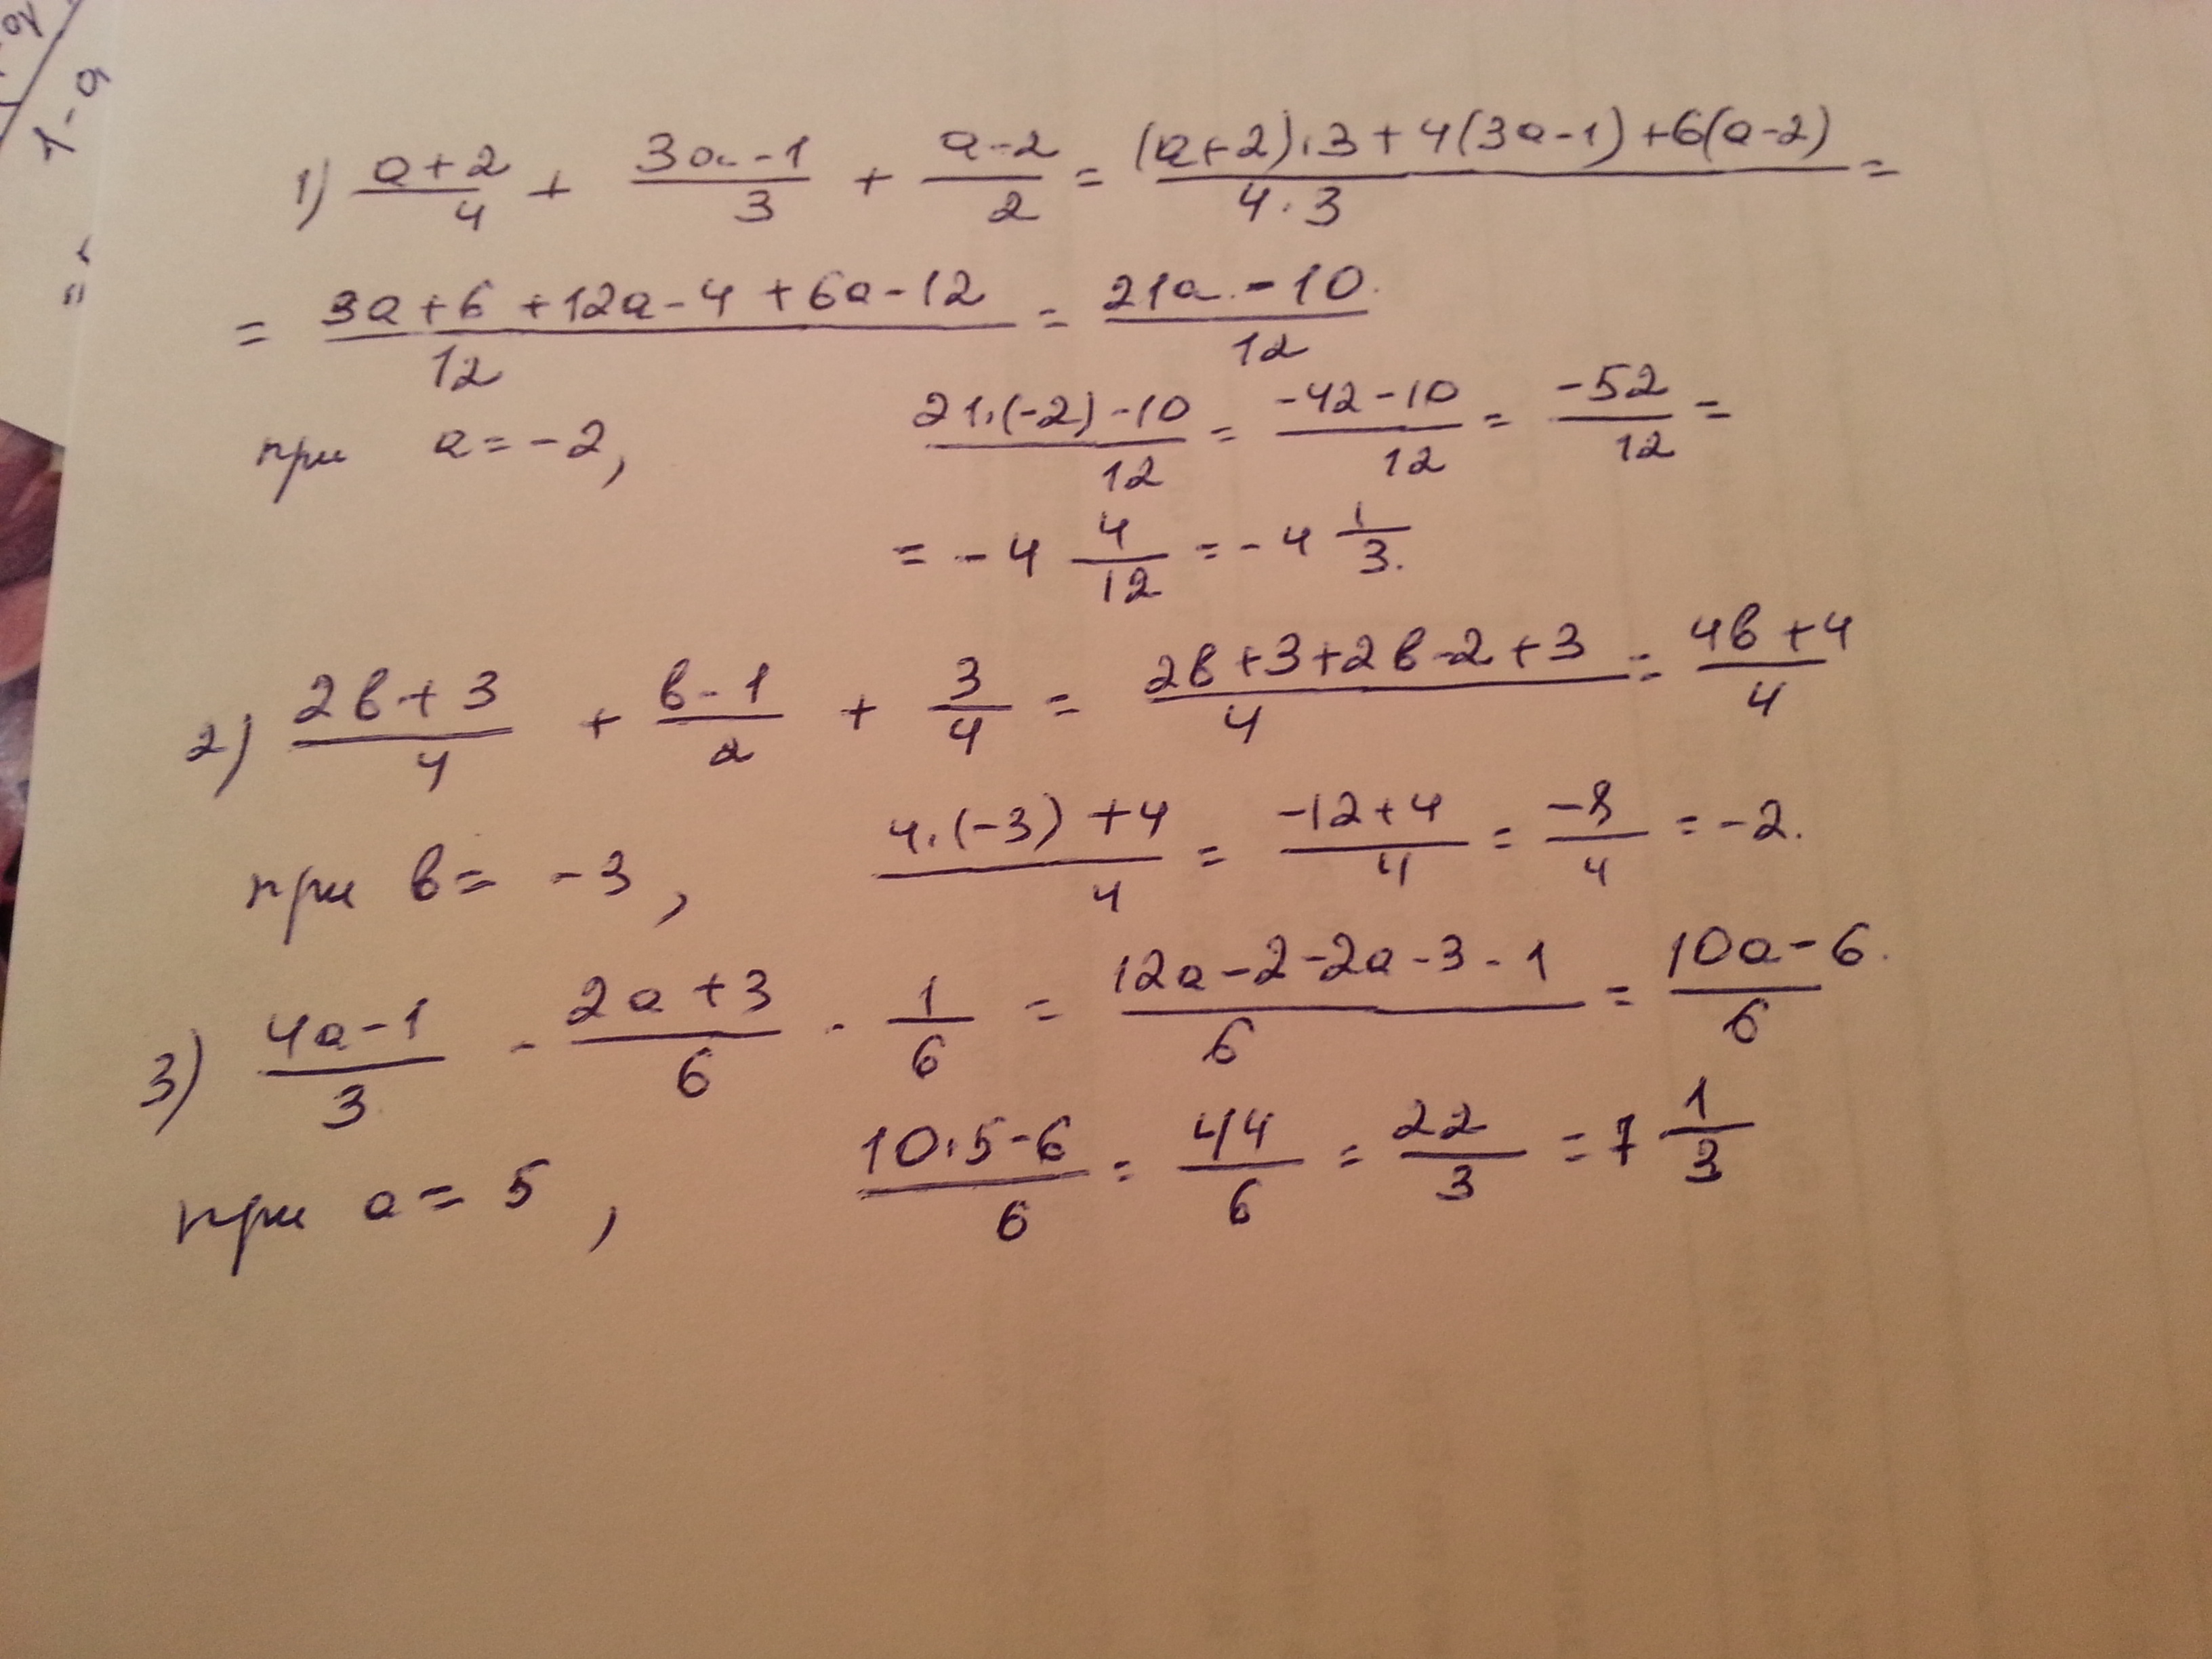 1) (a+2)/4 + (3a-1)/3 + (a-2)/2 = ((a+2)·3+4(3a-1)+6(a-2))/(4·3) =
= (3a+6+12a-4+6a-12)/12 = (21a-10)/12
при a=-2, (21·(-2)-10)/12 = (-42-10)/12 = (-52)/12 =
= -4 4/12 = -4 1/3.
2) (2b+3)/4 + (b-1)/2 + 3/4 = (2b+3+2b-2+3)/4 = (4b+4)/4
при b= -3, (4·(-3)+4)/4 = (-12+4)/4 = (-8)/4 = -2.
3) (4a-1)/3 - (2a+3)/6 - 1/6 = (12a-2-2a-3-1)/6 = (10a-6)/6
при a= 5, (10·5-6)/6 = 44/6 = 22/3 = 7 1/3